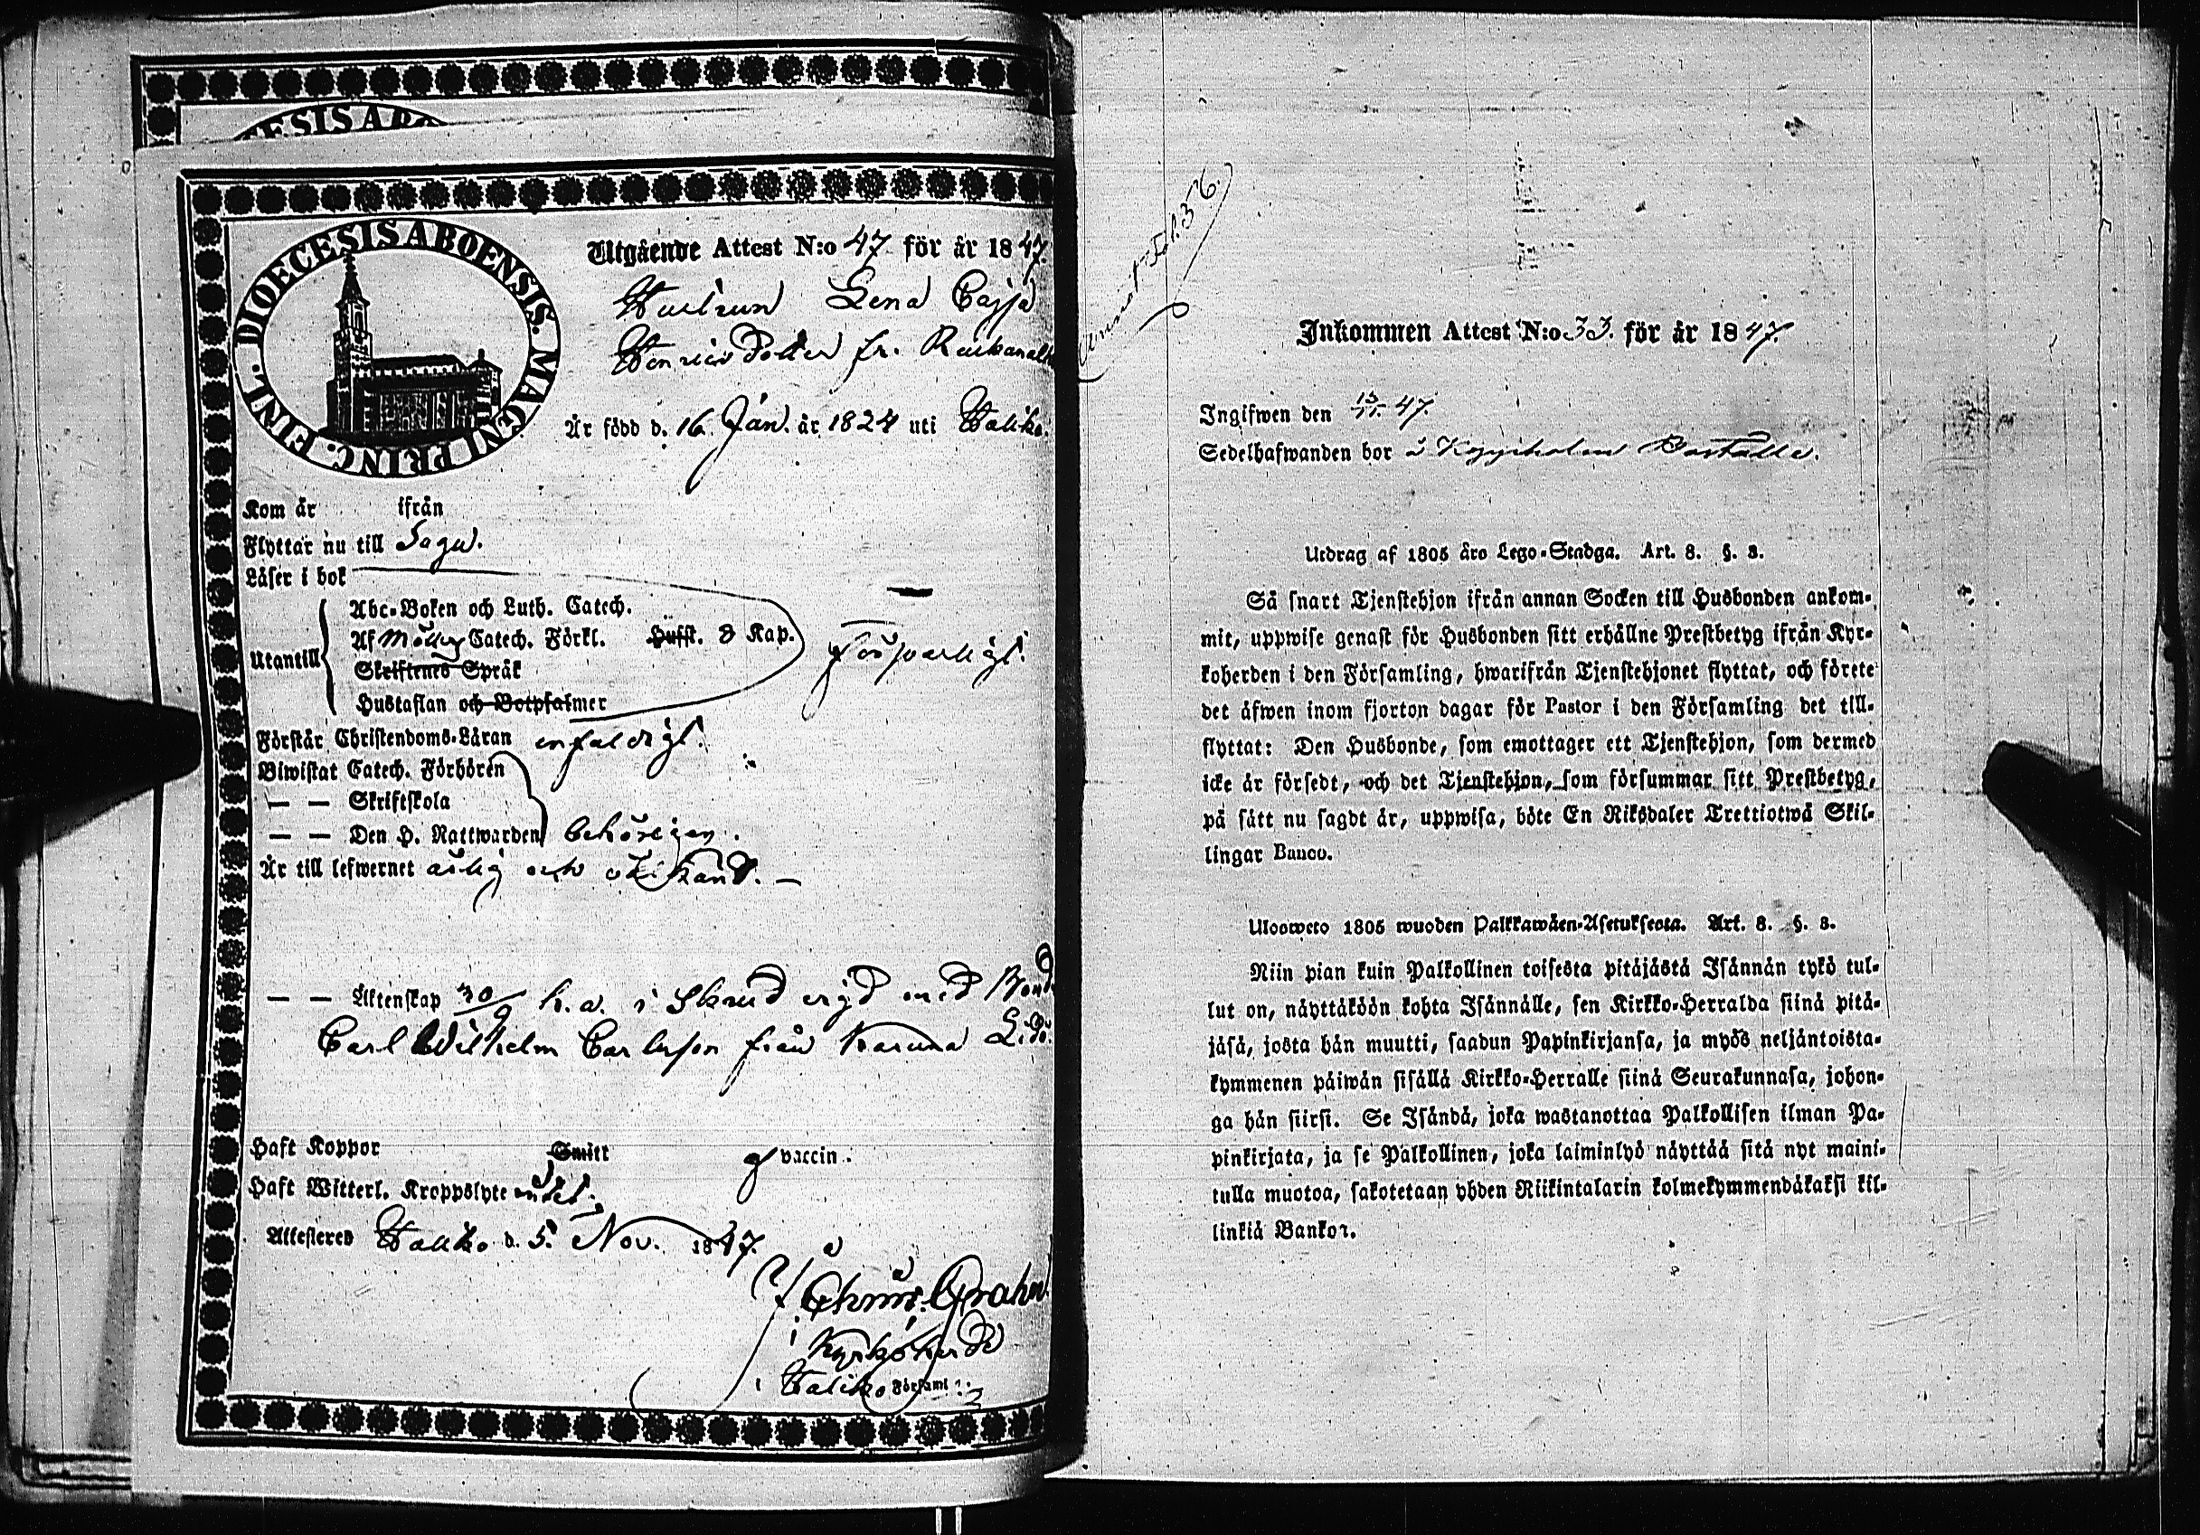 ESIS ABO
DIOECESIS ABOENSIS. MAGNI PRINC. FINL.
Utgående Attest N:o 47 för år 1847.
Hustrun Lena Cajsa
Henricsdotter fr.
Är född d. 16 Jan. år 1824 uti Haliko.
Kom år ifrån
Flyttar nu till Sagu.
Läser i bok
Utantill
Abc-Boken och Luth. Catech.
Af Möllers Catech. Förkl. Husst. 8 Kap.
försvarligt.
Skriftenes Språk
Hustaflan och Botpsalmer
Förstår Christendoms-Läran enfaldigt.
Biwistat Catech. Förhören
— — Skriftskola
— — Den H. Nattwarden behörigen.
Är till lefwernet ärlig och okiscand. —
— — Äktenskap 30/9 h. a. i med Bond.
Carl Wilhelm Carlsson från Karuna
Haft Koppor Smitt g vaccin.
Haft Witterl. Kroppslyte intet.
Attesteres Haliko d. 5. Nov. 1847.
Grahn
Kyrkoherde
i Haliko Församl:
36.
Inkommen Attest N:o 33. för år 1847.
Ingifwen den 13/11 47.
Sedelhafwanden bor i Boställe.
Utdrag af 1805 års Lego-Stadga. Art. 8. §. 3.
Så snart Tjenstehjon ifrån annan Socken till Husbonden ankom-
mit, uppwise genast för Husbonden sitt erhållne Prestbetyg ifrån Kyr-
koherden i den Församling, hwarifrån Tjenstehjonet flyttat, och förete
det äfwen inom fjorton dagar för Pastor i den Församling det till-
flyttat: Den Husbonde, som emottager ett Tjenstehjon, som dermed
icke är försedt, och det Tjenstehjon, som försummar sitt Prestbetyg,
på sätt nu sagdt är, uppwisa, böte En Riksdaler Trettiotwå Skil-
lingar Banco.
Ulosweto 1805 wuoden Palkkawäen-Asetuksesta. Art. 8. §. 3.
Niin pian kuin Palkollinen toisesta pitäjästä Isännän tykö tul-
lut on, näyttäköön kohta Isännälle, sen Kirkko-Herralda siinä pitä-
jäsä, josta hän muutti, saadun Papinkirjansa, ja myös neljäntoista-
kymmenen päiwän sisällä Kirkko-Herralle siinä Seurakunnasa, johon-
ga hän siirsi. Se Isändä, joka wastanottaa Palkollisen ilman Pa-
pinkirjata, ja se Palkollinen, joka laiminlyö näyttää sitä nyt maini-
tulla muotoa, sakotetaan yhden Riikintalarin kolmekymmendäkaksi kil-
linkiä Bankor.